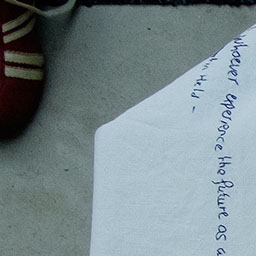 whoever eperience the future as a
Held -